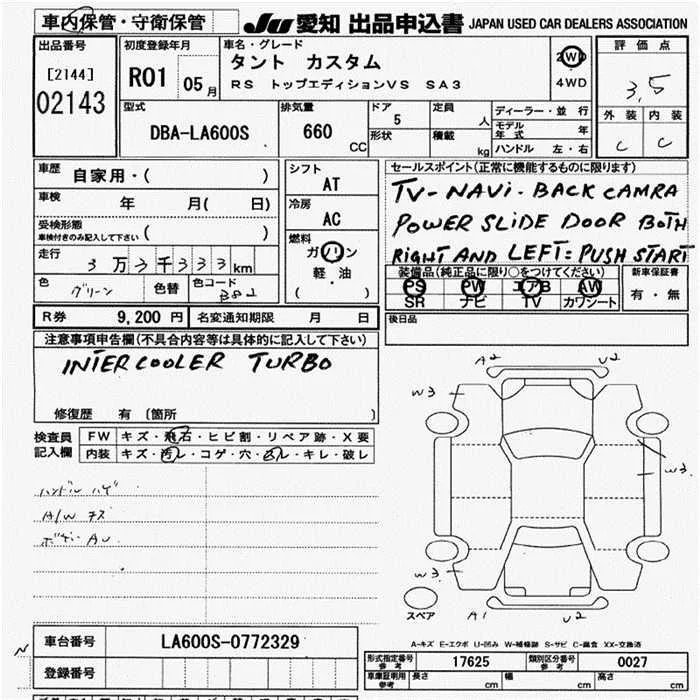 車内保管・守衛保管
JU 愛知 出品申込書 JAPAN USED CAR DEALERS ASSOCIATION
出品番号
[2144]
02143
初度登録年月
R01 05月
車名・グレード
タント カスタム
RS トップエディションVS SA3
2WD
4WD
評価点
3,5
外装 内装
C C
型式
DBA-LA600S
排気量
660 CC
ドア 5
形状
定員 人
積載 kg
ディーラー・並行
モデル年式 年
ハンドル 左・右
車歴 自家用・( )
車検 年 月( 日)
受検形態
車検付きのみ記入して下さい ( )
走行 3万3千333km
色 グリーン 色替 色コード B82
シフト
AT
冷房
AC
燃料
ガソリン
軽・油
( )
セールスポイント(正常に機能するものに限ります)
TV-NAVI-BACK CAMRA
POWER SLIDE DOOR BOTH
RIGHT AND LEFT= PUSH START
装備品(純正品に限り○をつけてください)
PS PW エアB AW
SR ナビ TV カワシート
新車保証書
有・無
R券 9,200円 名変通知期限 月 日
後日品
注意事項申告欄(不具合内容等は具体的に記入して下さい)
INTERCOOLER TURBO
修復歴 有 〔箇所 〕
検査員記入欄
FW キズ・飛石・ヒビ割・リペア跡・X要
内装 キズ・汚レ・コゲ・穴・凸レ・キレ・破レ
ハンドル ハゲ
A/W キズ
ボディー AU
A2 U2
W3
W3
W3
A1 U2
スペア
A-キズ E-エクボ U-凹み W-補修跡 S-サビ C-腐食 XX-交換済
N
車台番号 LA600S-0772329
登録番号
形式指定番号 参考 17625 類別区分番号 参考 0027
車庫証明用 参考 長さ cm 幅 cm 高さ cm